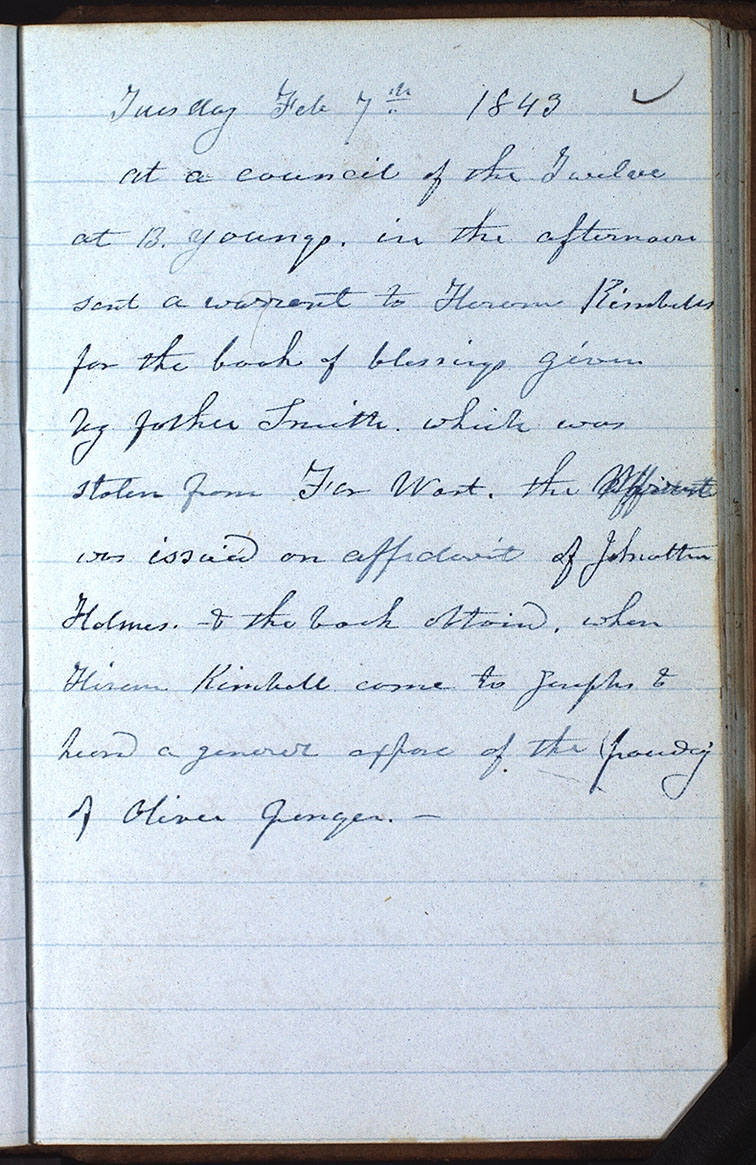 Tuesday Feb 7th 1843
at a council of the Twelve
at B. Youngs. in the afternoon
sent a warrent to Hirum Kimbals
for the book of blessings given
by father Smith. which was
stolen from Far West. the
was issued on affidavit of Johnathan
Holmes. & the book obtaind, when
Hiram Kimball come to Josephs &
heard a general expose of the
of Oliver Granger. —